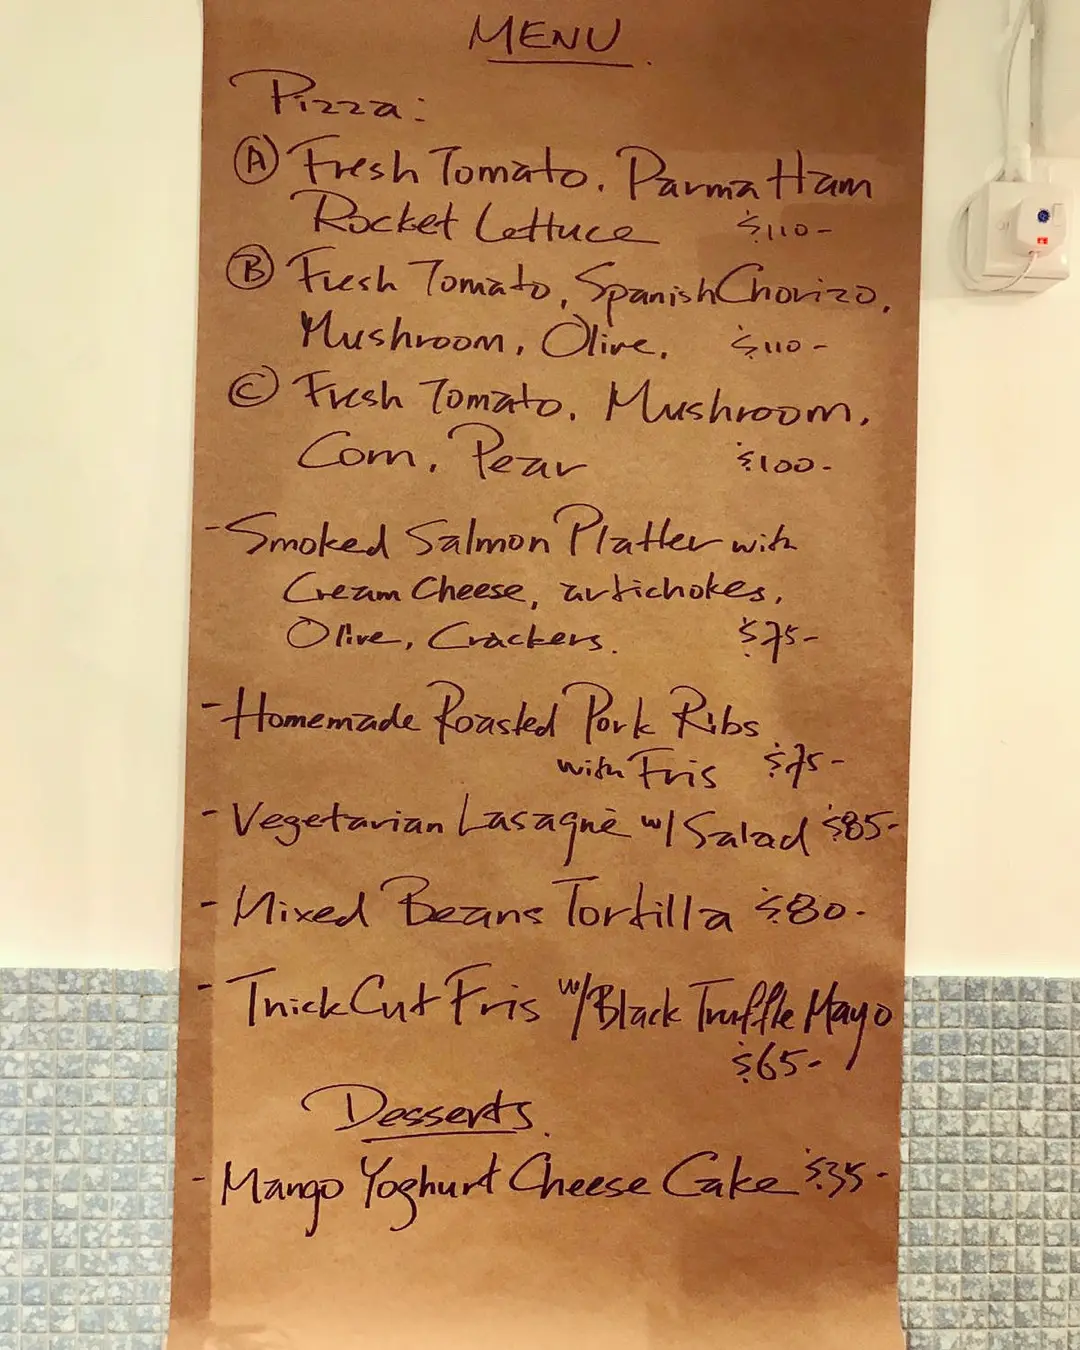 MENU.
Pizza:
Ⓐ Fresh Tomato. Parma Ham
Rocket Lettuce $110-
Ⓑ Fresh Tomato, Spanish Chorizo,
Mushroom, Olive, $110-
Ⓒ Fresh Tomato, Mushroom,
Corn, Pear $100-
- Smoked Salmon Platter with
Cream Cheese, artichokes,
Olive, Crackers. $75-
- Homemade Roasted Pork Ribs
with Fris $75-
- Vegetarian Lasagnè w/ Salad $85-
- Mixed Beans Tortilla $80-
- Thick Cut Fris w/ Black Truffle Mayo
$65-
Desserts.
- Mango Yoghurt Cheese Cake $35-